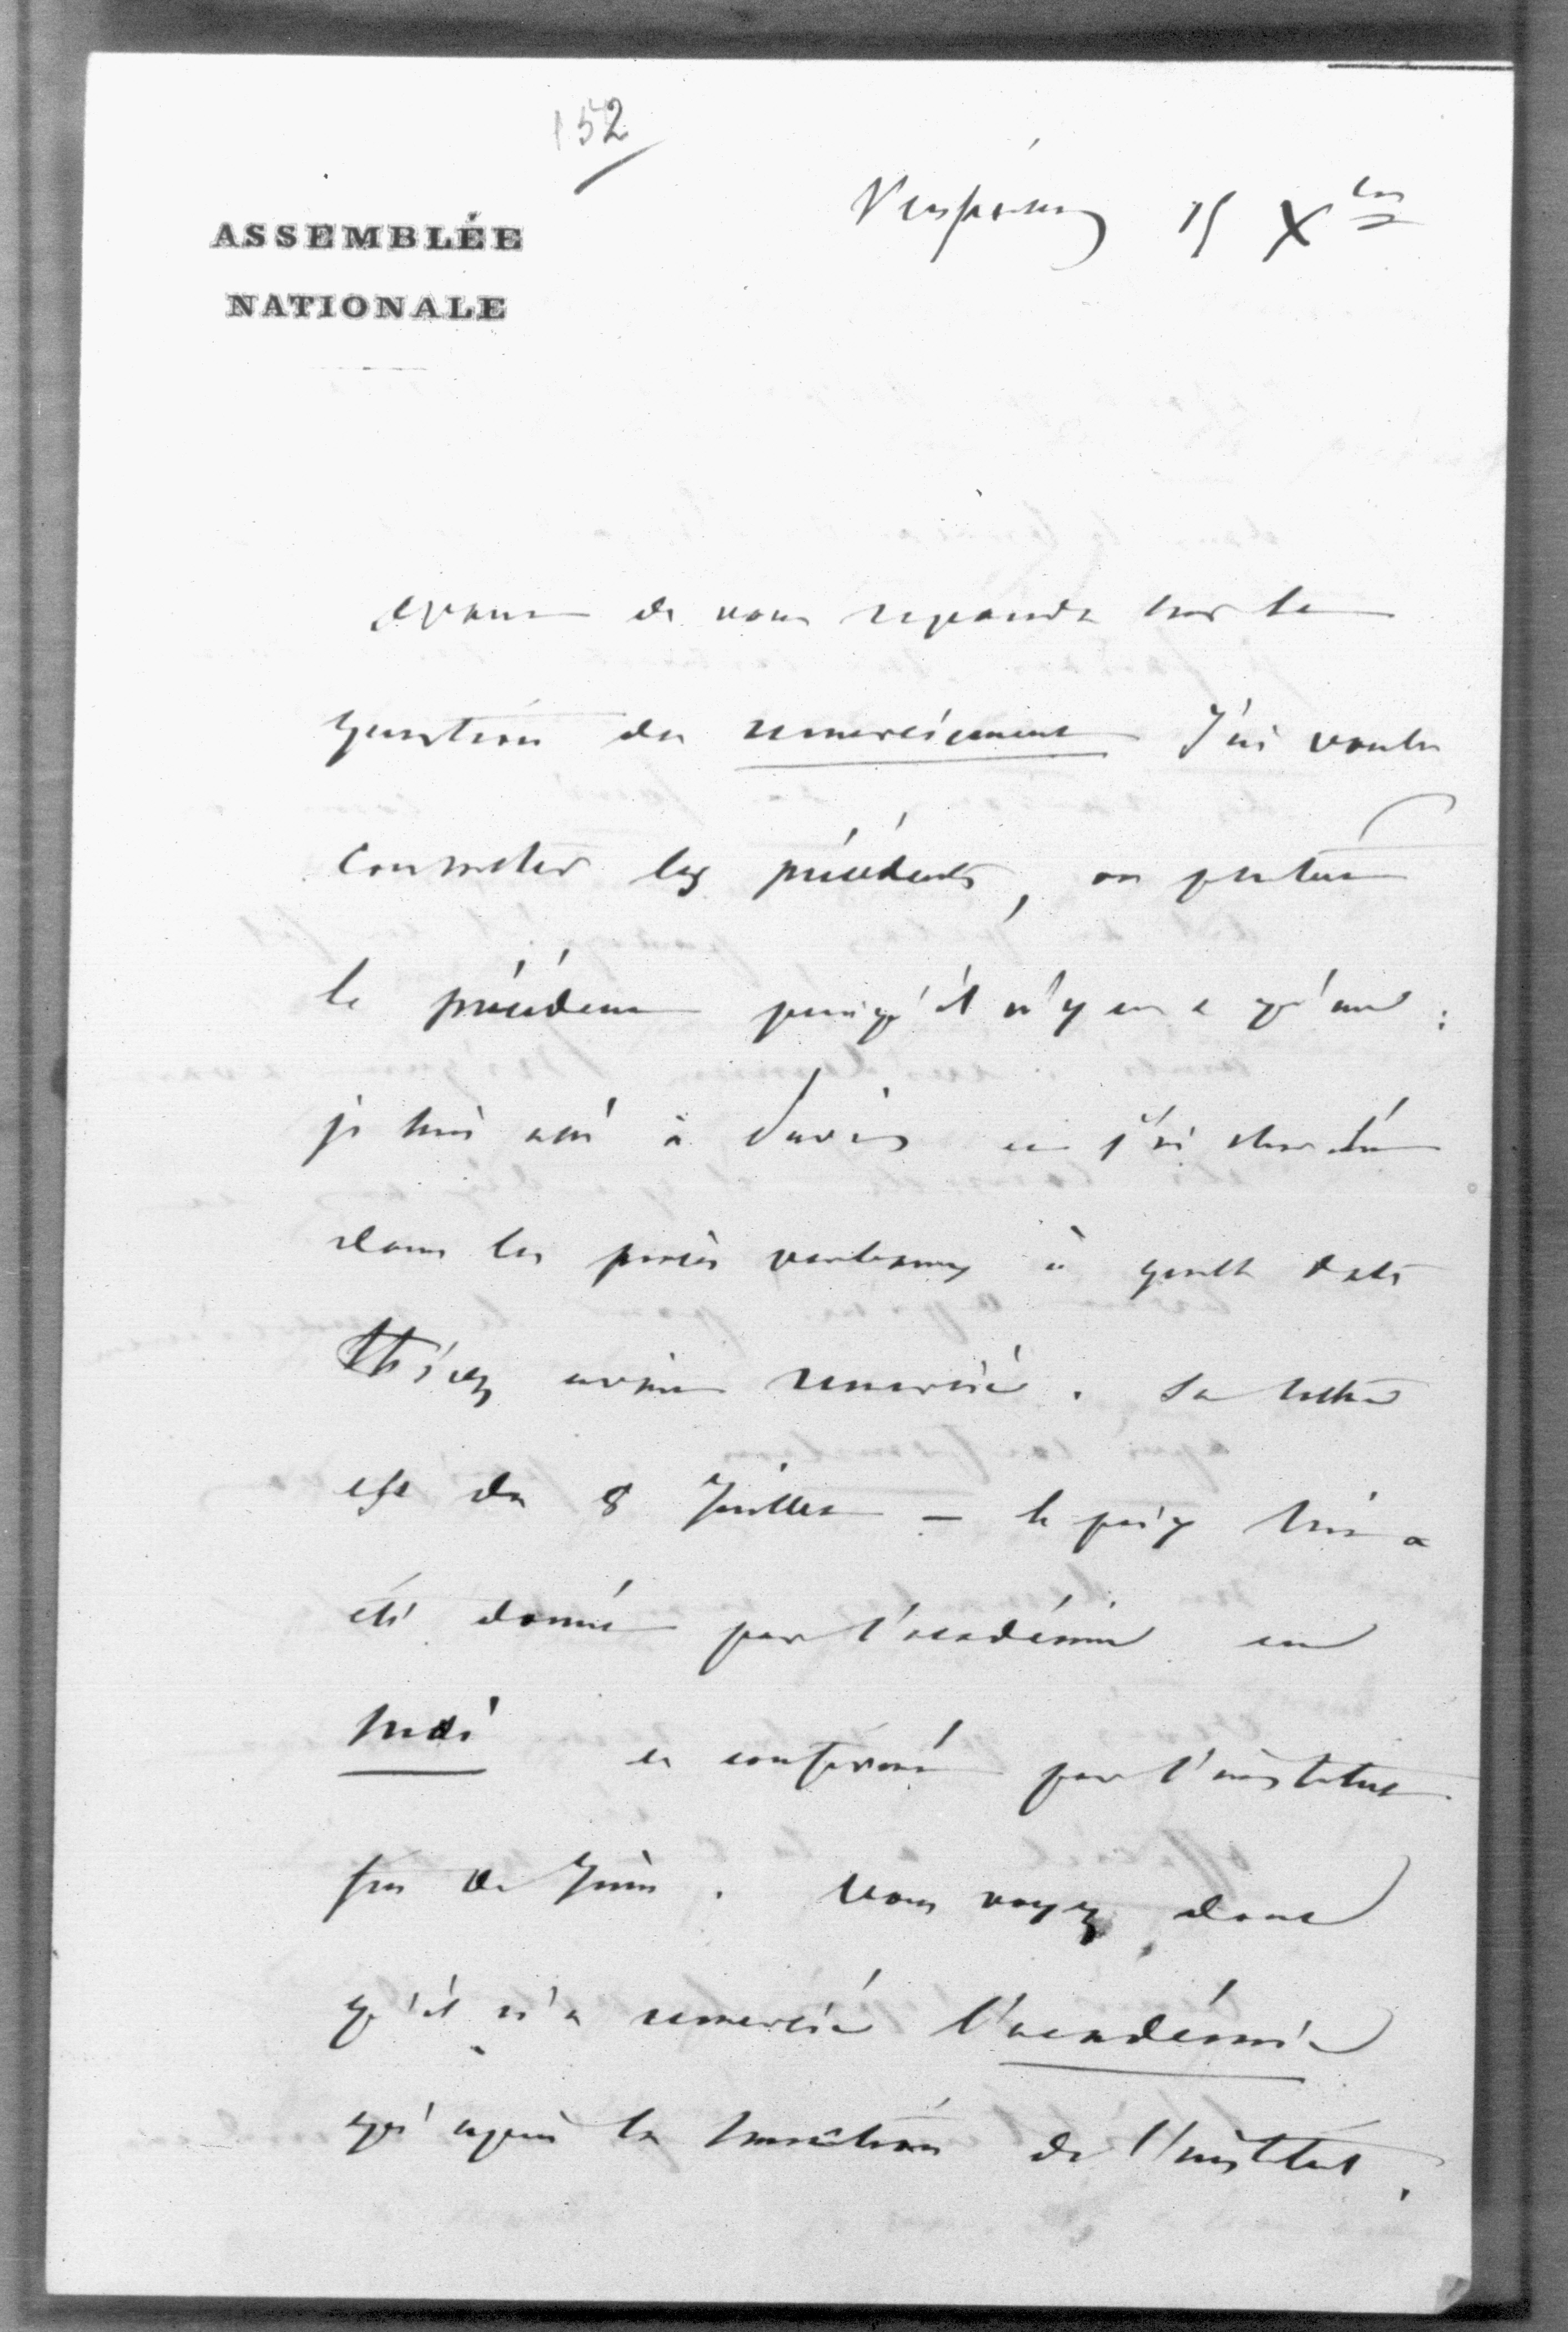 152
ASSEMBLÉE
NATIONALE
15 Xbre
avant de vous repondre sur la
question du remerciement J'ai voulu
consulter les précédents, ou plutôt
le précédent puisqu'il n'y en a qu'un :
je suis allé à Paris et j'ai cherché
dans les procès verbaux à quelle date
Thiers avait remercié. Sa lettre
est du 8 Juillet — le prix lui a
été donné par l'académie en
mai et confirmé par l'institut
fin de Juin. Vous voyez donc
qu'il n'a remercié l'académie
qu'après la sanction de l'institut.